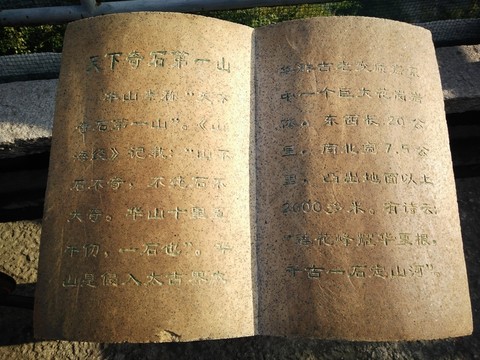 天下奇石第一山
华山素称“天下
奇石第一山”。《山
海经》记载：“山不
石不奇，不纯石不
大奇。华山十里直
千仞，一石也”。华
山是侵入太古界火
中一个巨大花岗岩
体，东西长20公
里，南北宽7.5公
里，凸出地面以上
2000多米。有诗云：
“莲花峰耀华夏根，
千古一石定山河”。